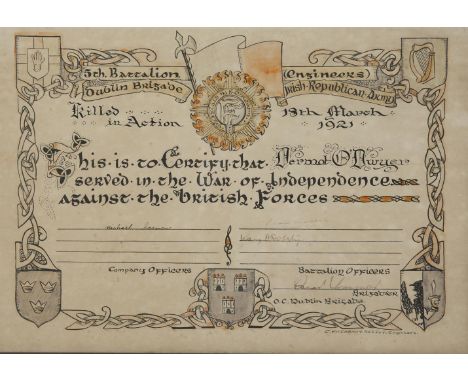 5th. Battalion (Engineers)
Dublin Brigade Irish Republican Army
Killed 18th March
in Action 1921
This is to Certify that Dermot O'Dwyer
served in the War of Independence
against the British Forces
Michael
Company Officers Battalion Officers
Brigadier
O.C. Dublin Brigade